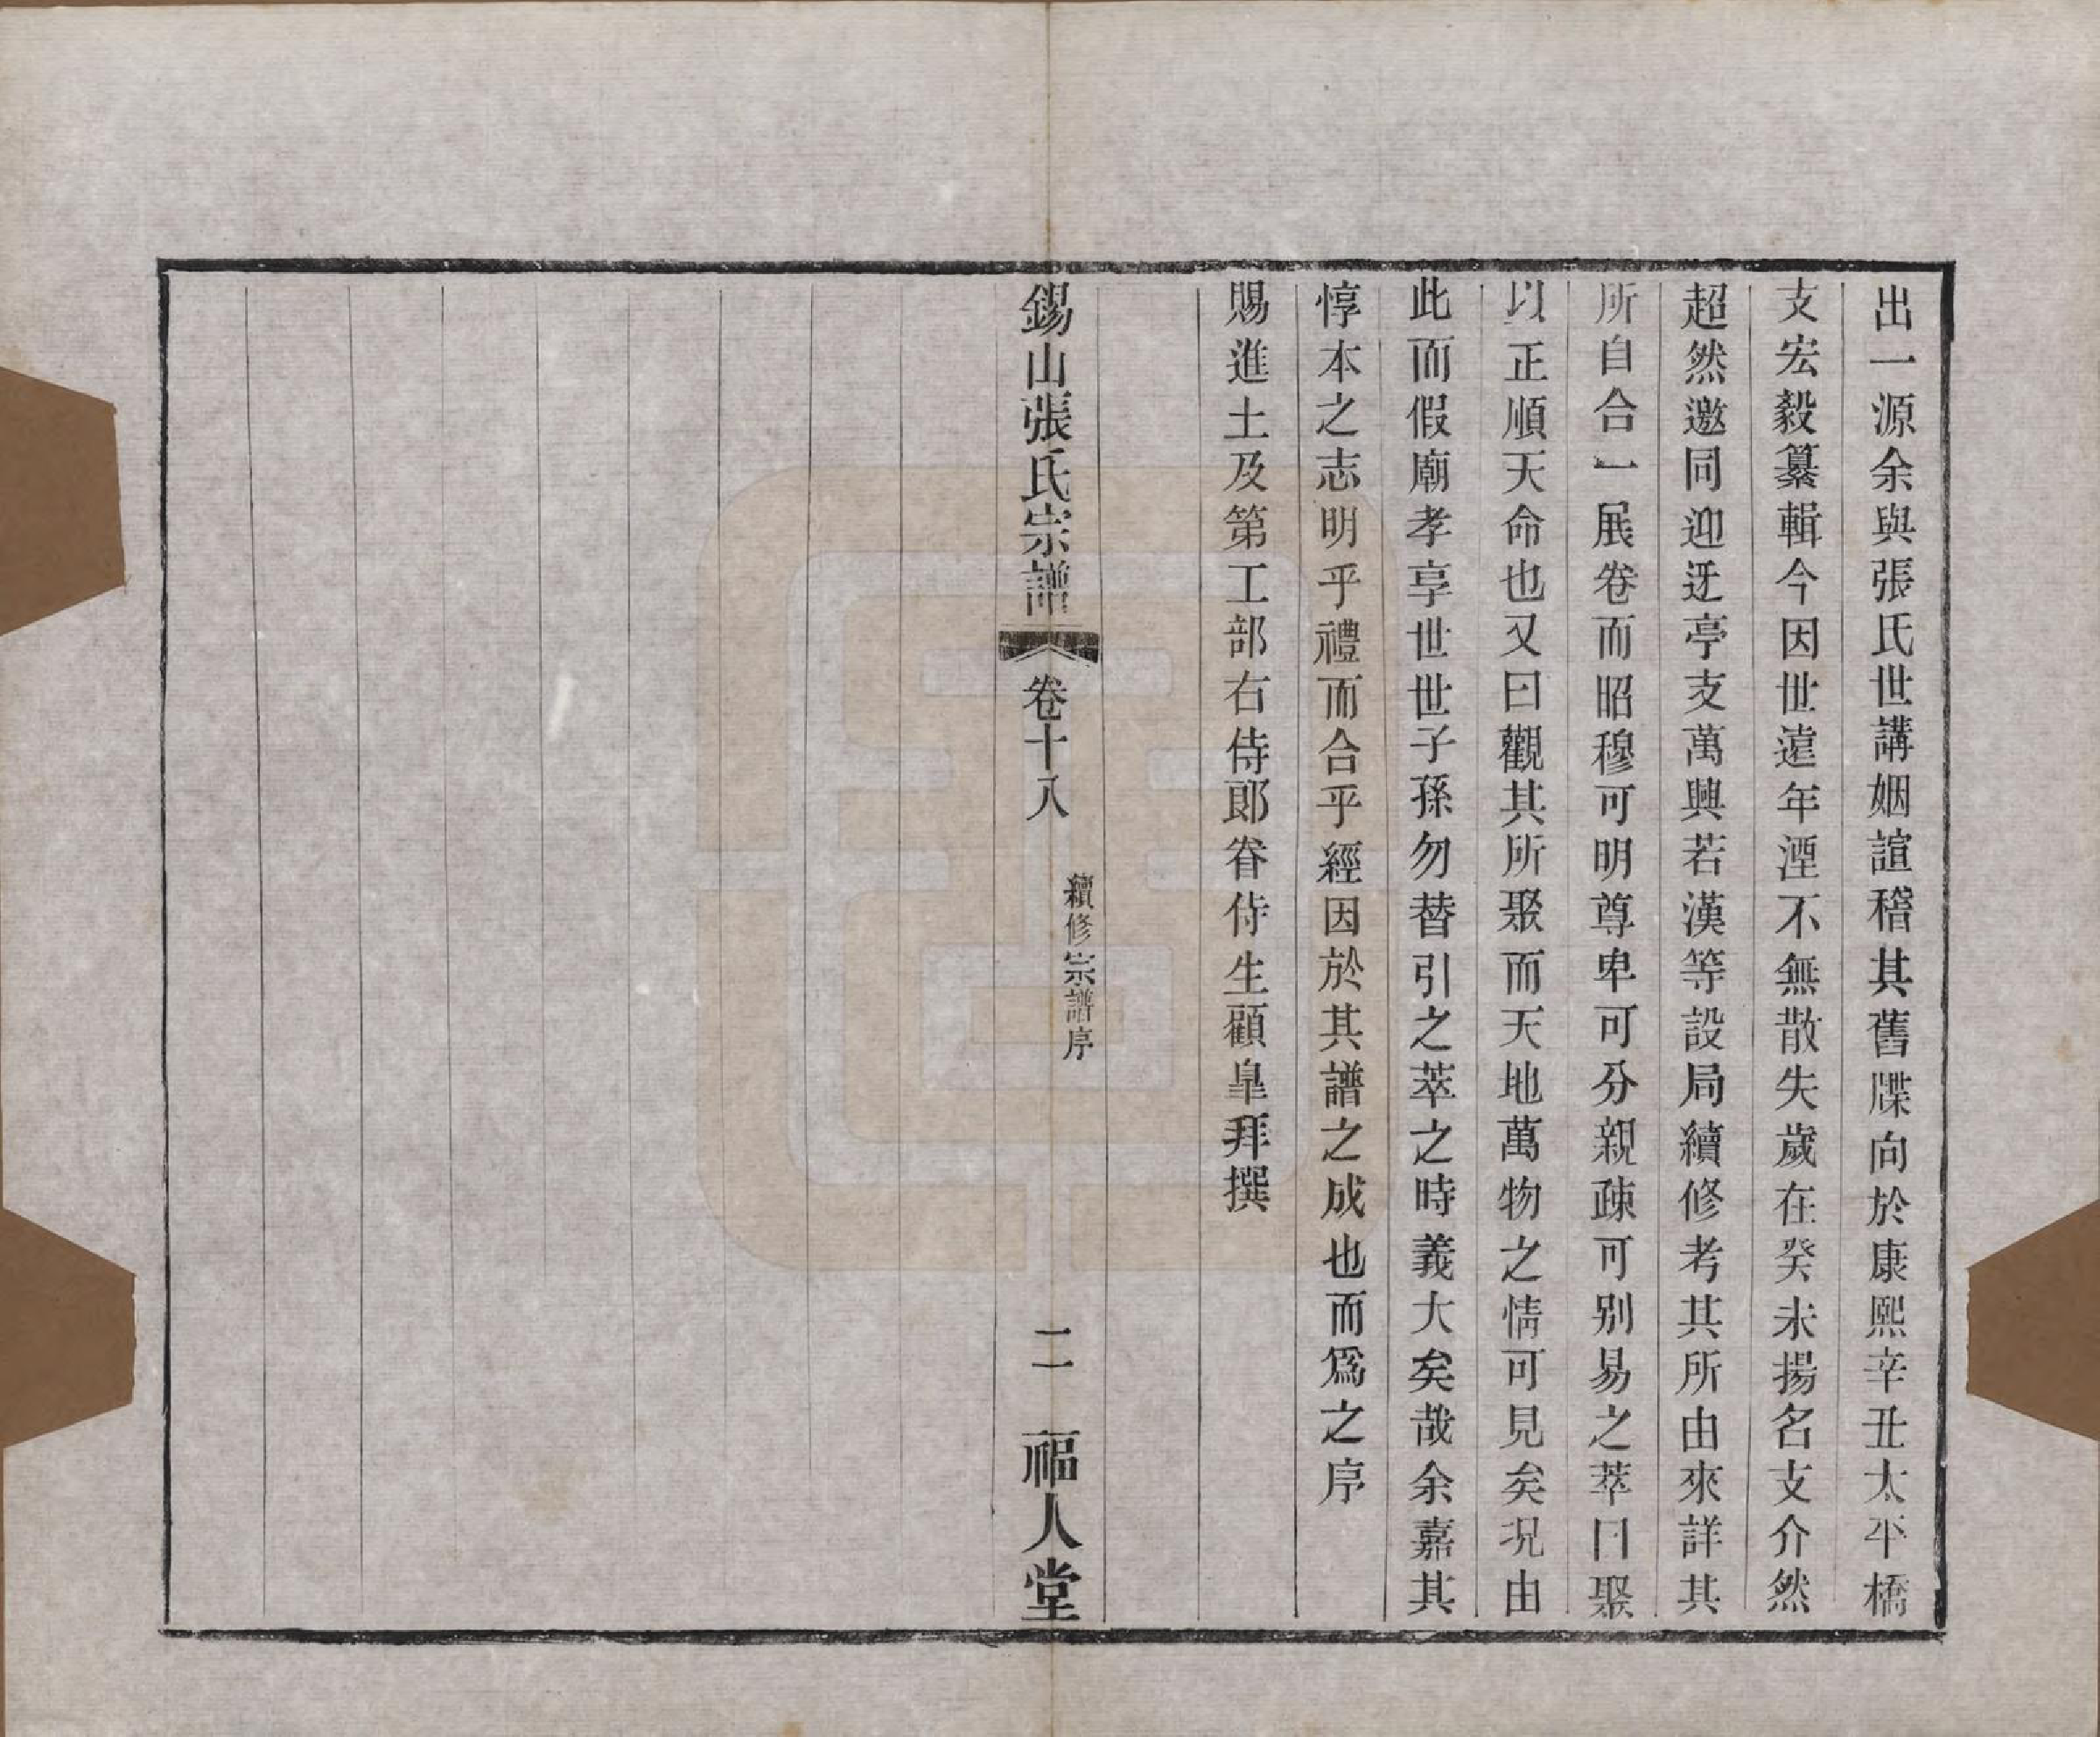 出一源余與張氏世講姻誼稽其舊牒向於康熙辛丑太平橋
支宏毅纂輯今因世遠年湮不無散失歲在癸未揚名支介然
超然邀同迎迓亭支萬興若漢等設局續修考其所由來詳其
所自合一展卷而昭穆可明尊卑可分親疎可別易之萃曰聚
以正順天命也又曰觀其所聚而天地萬物之情可見矣況由
此而假廟孝享世世子孫勿替引之萃之時義大矣哉余嘉其
惇本之志明乎禮而合乎經因於其譜之成也而爲之序
賜進士及第工部右侍郎眷侍生顧皐拜撰
錫山張氏宗譜
卷十八
續修宗譜序
二
福人堂